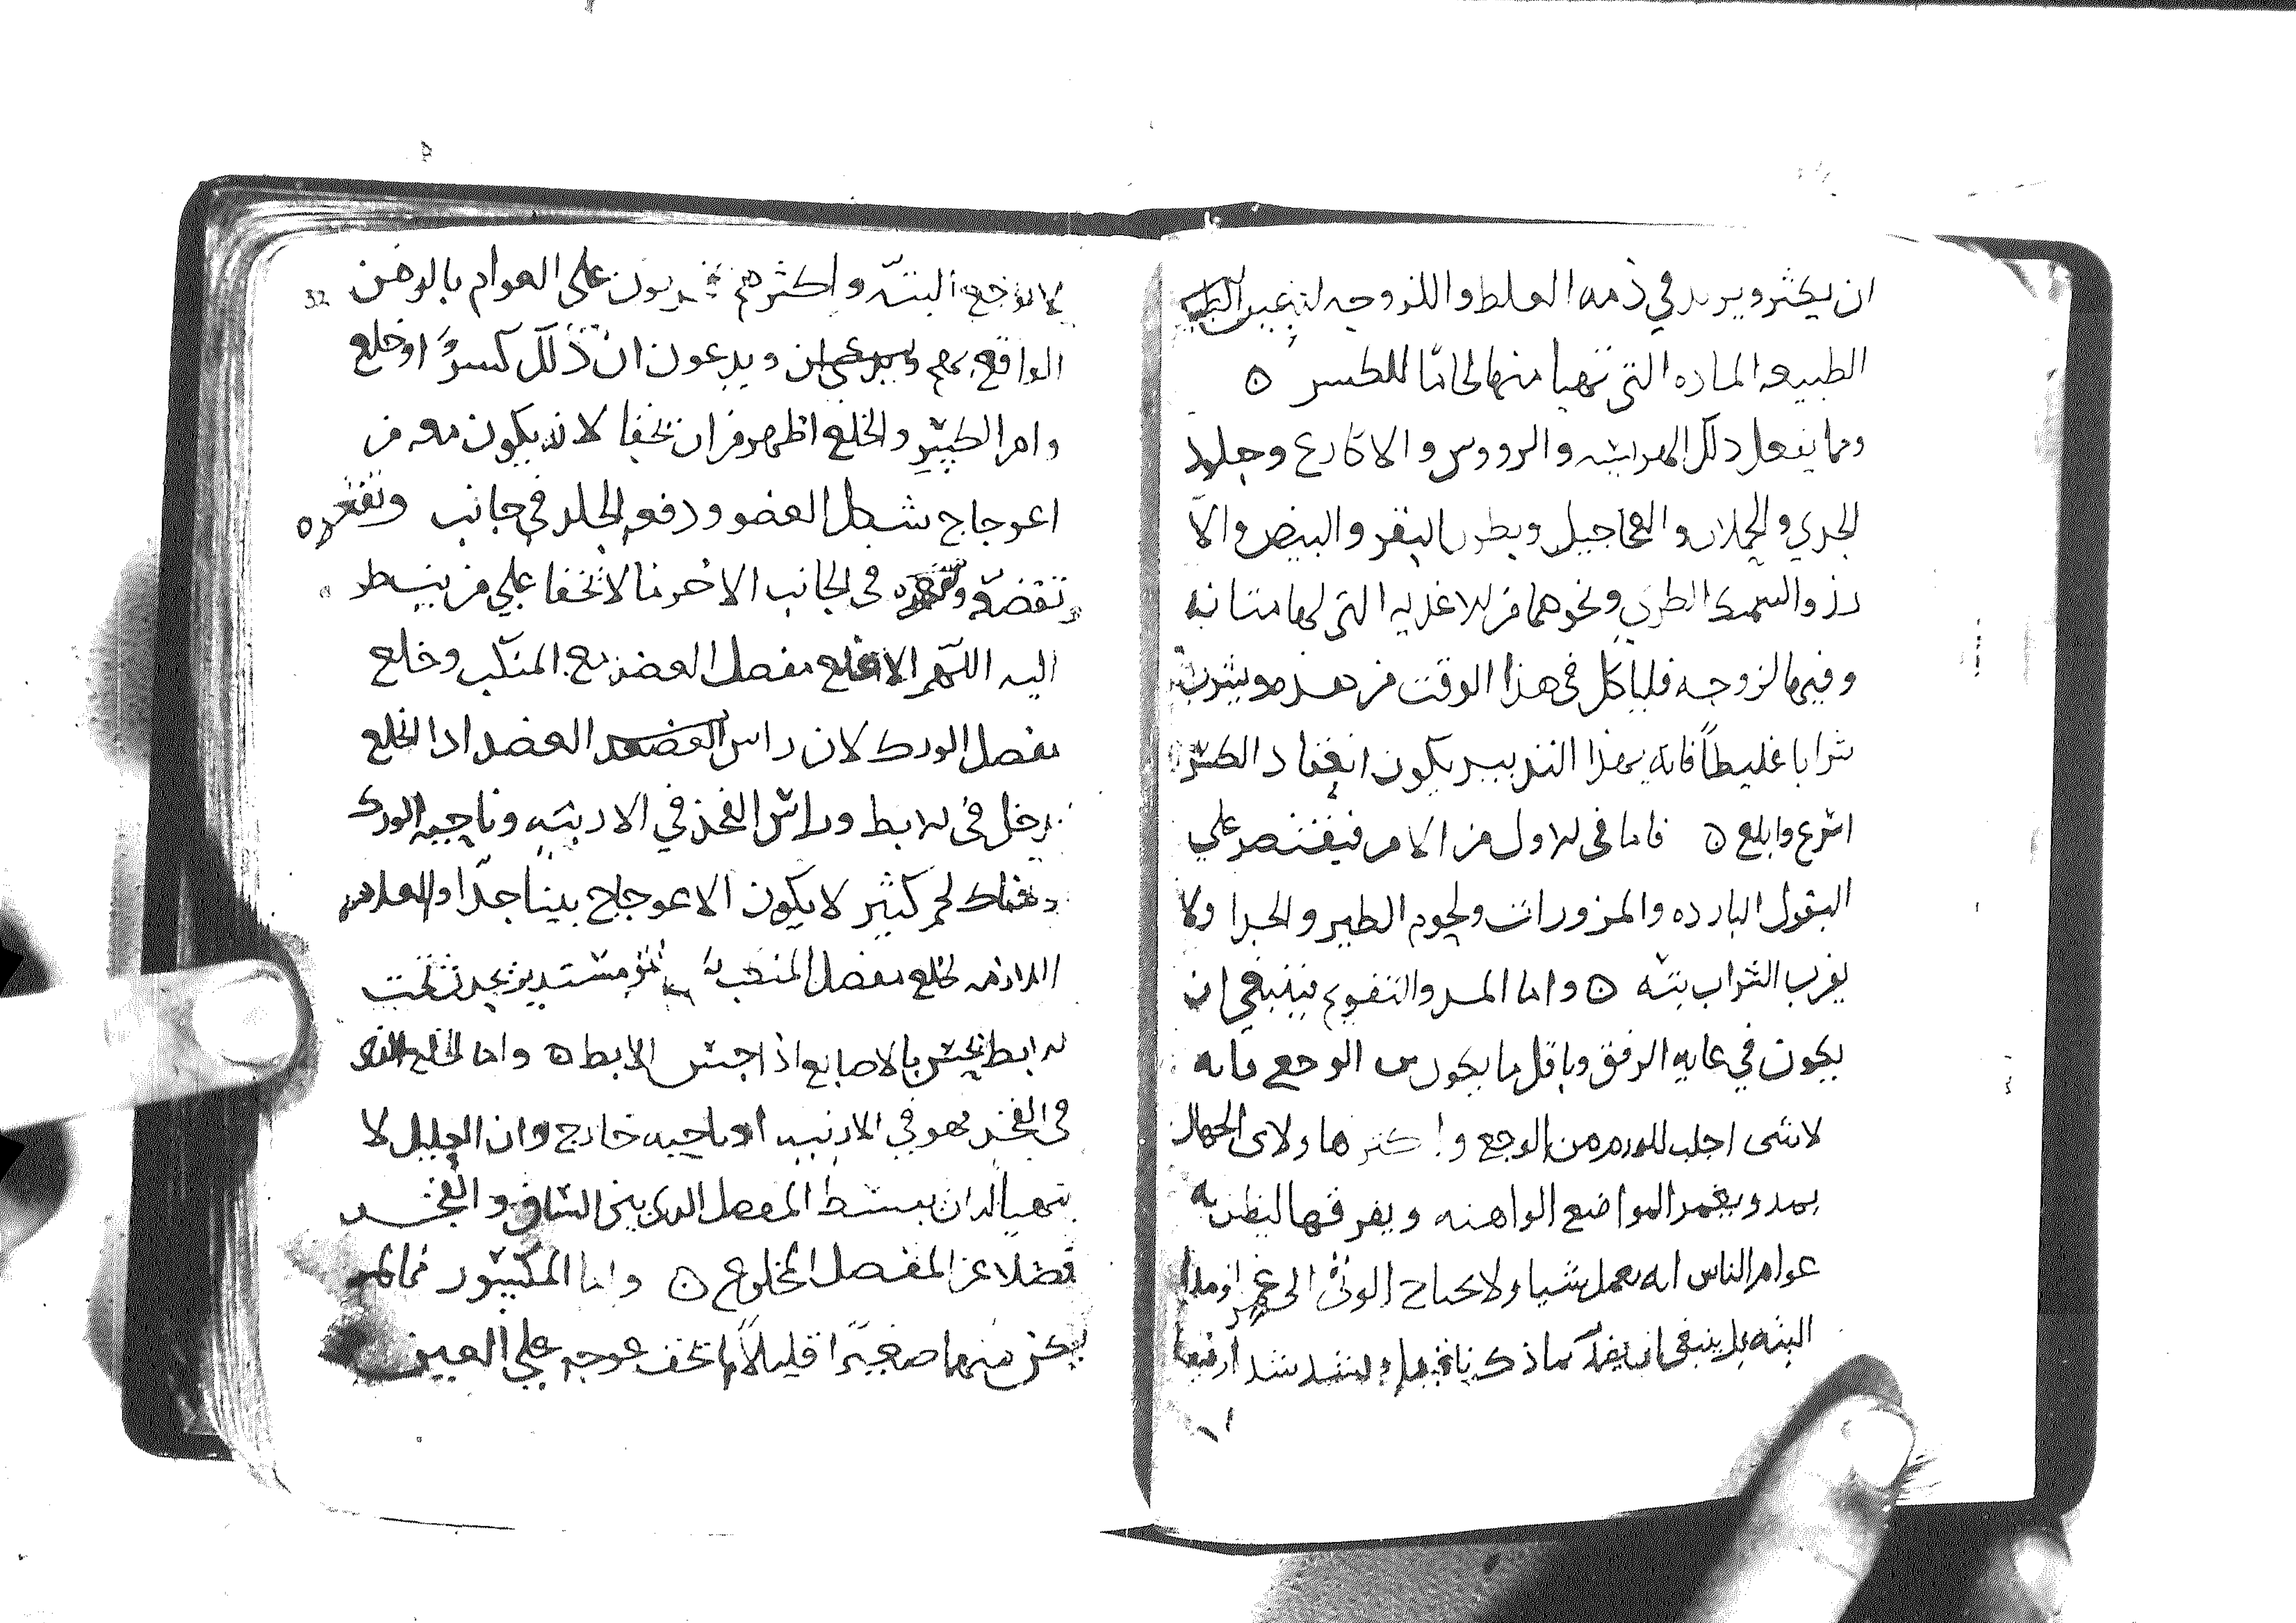 ان يكثر ويريد في دمه الغلط واللزوجه لتعين
الطبيعه الماده التي تهيا منها لحاما للكسر ه
ومما يفعل ذلك الهرايسه والرووس والاكارع وجلود
الجدي والحملان والعجاجيل وبطون البقر والبيض والا
رز والسمك الطري ونحوها من الاغذيه التي لها متانه
وفيها لزوجه فلياكل في هذا الوقت من هذه ويشرب
شرابا غليطاً فانه بهذا التدبير يكون انعقاد الكسر
اسرع وابلغ ه فاما في الاول من الامر فيقتصر علي
البقول البارده والمزورات ولحوم الطير والجدا ولا
يقرب الشراب بته ه واما المد والتقويم فينبغي ان
يكون في غايه الرفق وباقل ما يكون من الوجع فانه
لا شي اجلب للورم من الوجع واكثر هاولاي الجهال
يمد ويغمز المواضع الواهنه ويفرقها ليظن به
عوام الناس انه يعمل شيا ولا يحتاج الوثي الى غمز او مد
البته بل ينبغي ان ما ذكرنا شد
32
لا توجع البته واكثرهم علي العوام بالوهن
الواقع بهم ويدعون ان ذلك كسرًا او خلع
وامر الكسر والخلع اظهر من ان يخفا لانه يكون معه من
اعوجاج شكل العضو ودفع الجلد في جانب وتقعره
تقصه في الجانب الاخر ما لا يخفا علي من ينسط
اليه اللهم الا خلع مفصل العضد مع المنكب وخلع
مفصل الورك لان راس العضد اذا انخلع
يدخل في الابط وراس الفخذ في الاربيه وناحيه الورك
وهناك لحم كثير لا يكون الاعوجاج بيناً جدّا والعلامه
اللازمه لخلع مفصل المنكب نتو مستدير يحدث تحت
الابط يحس بالاصابع اذا جس الابط ه واما الخلع الذي
في الفخذ فهو في الاربيه او ناحيه خارج وان العليل لا
يتهيا له ان يبسط المفصل الذي بين الساق والفخذ
فضلا عن المفصل المخلوع ه واما المكسور فما لم
يكن منها صغيرًا قليلاً لم يخف عوجه علي العين